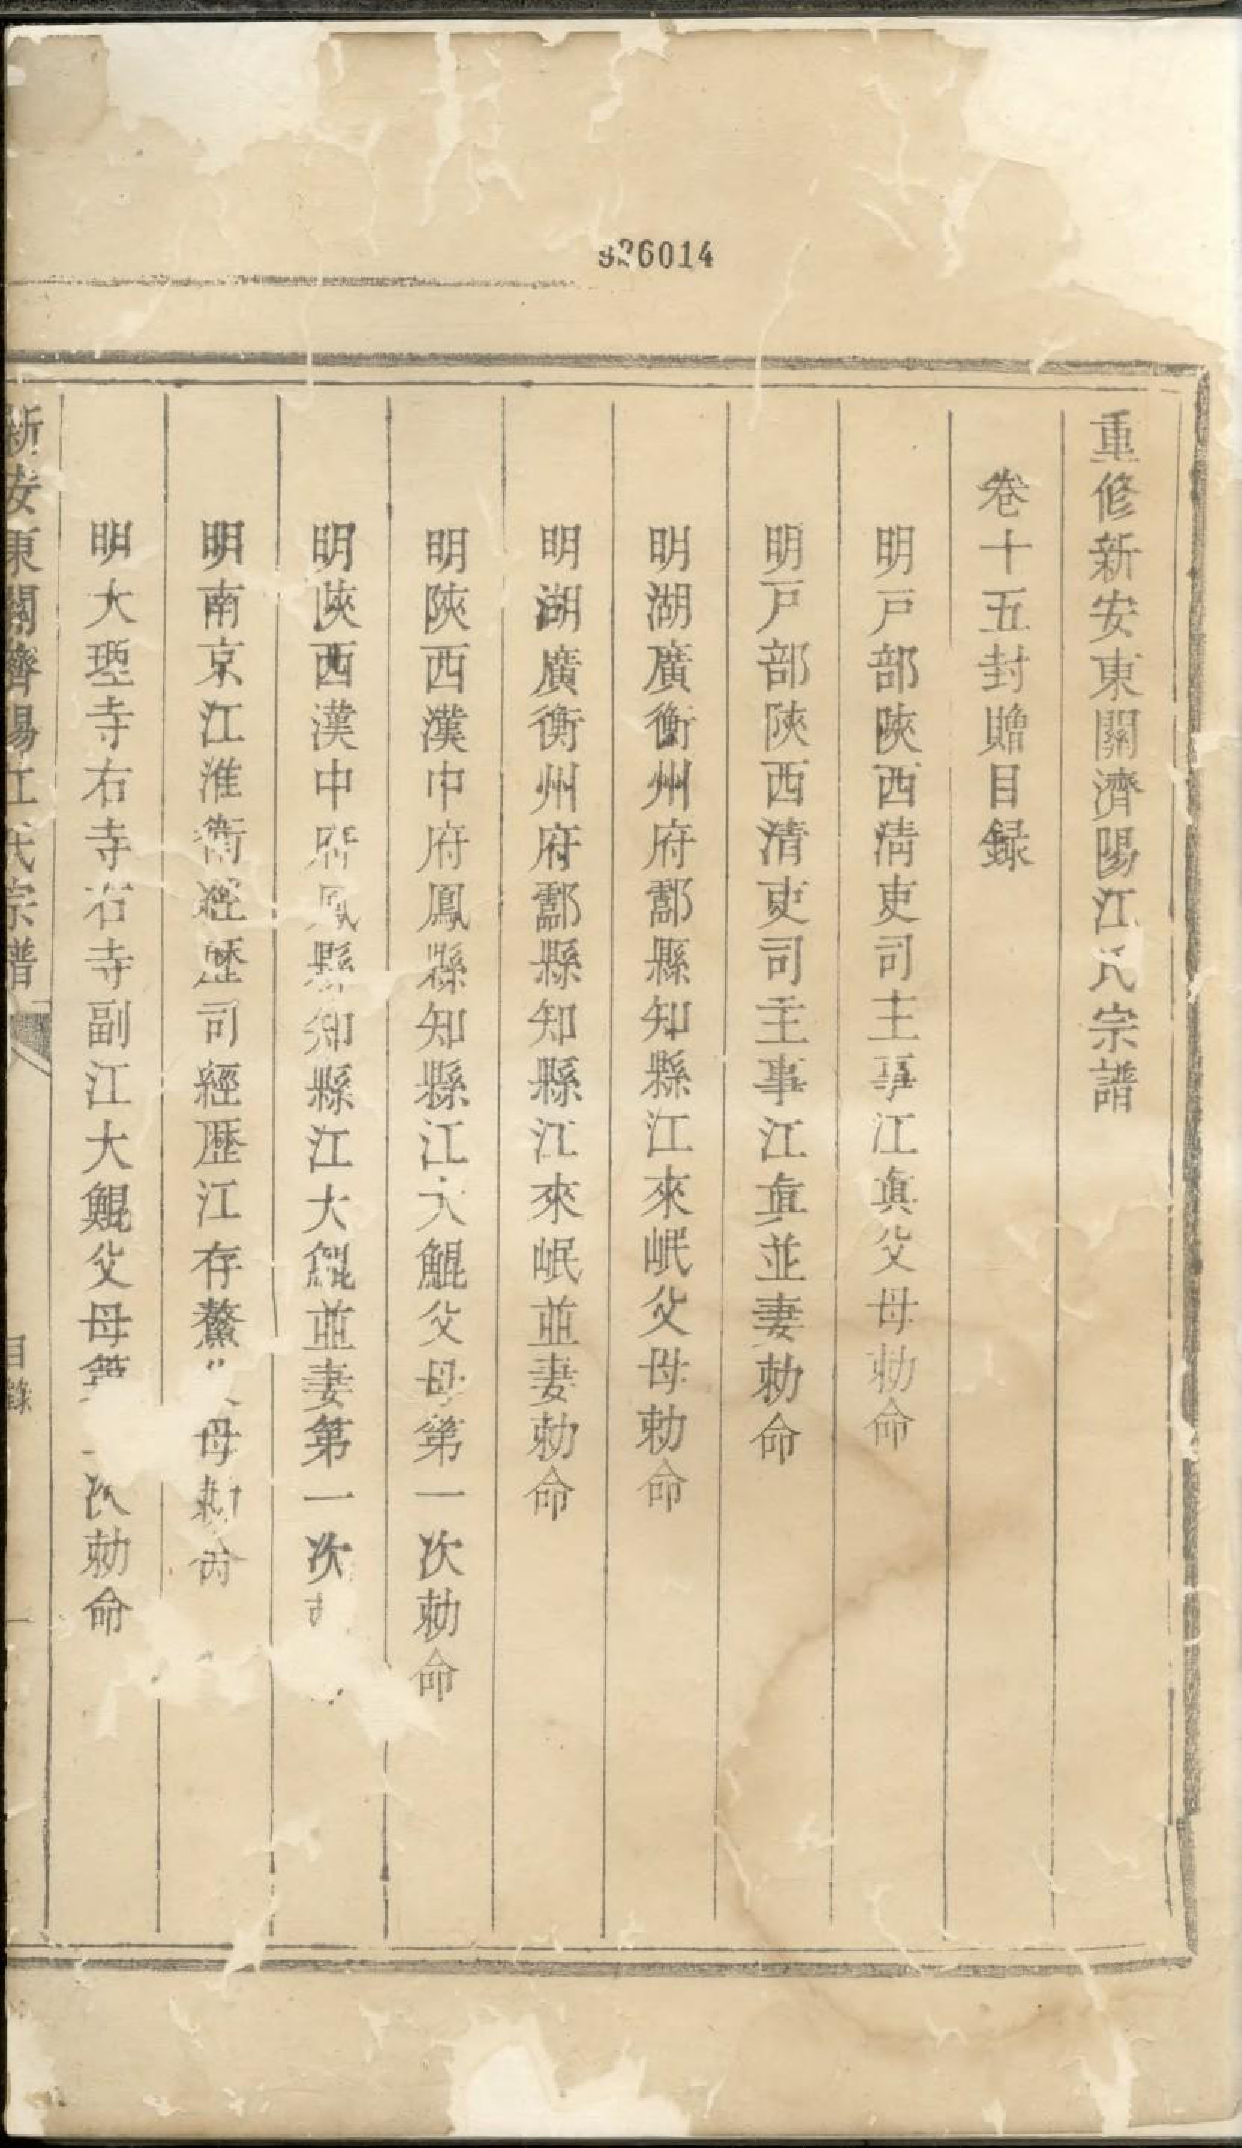 926014
重修新安東關濟陽江氏宗譜
卷十五封贈目録
明戸部陜西清吏司主事江眞父母勅命
明戸部陜西清吏司主事江眞並妻勅命
明湖廣衡州府酃縣知縣江來岷父母勅命
明湖廣衡州府酃縣知縣江來岷並妻勅命
明陜西漢中府鳳縣知縣江大鯤父母第一次勅命
明陜西漢中府鳳縣知縣江大鯤並妻第一次
明南京江淮衛經歷司經歷江存鰲母勅命
明大理寺右寺右寺副江大鯤父母第次勅命
新安東關濟陽江氏宗譜
目錄
一